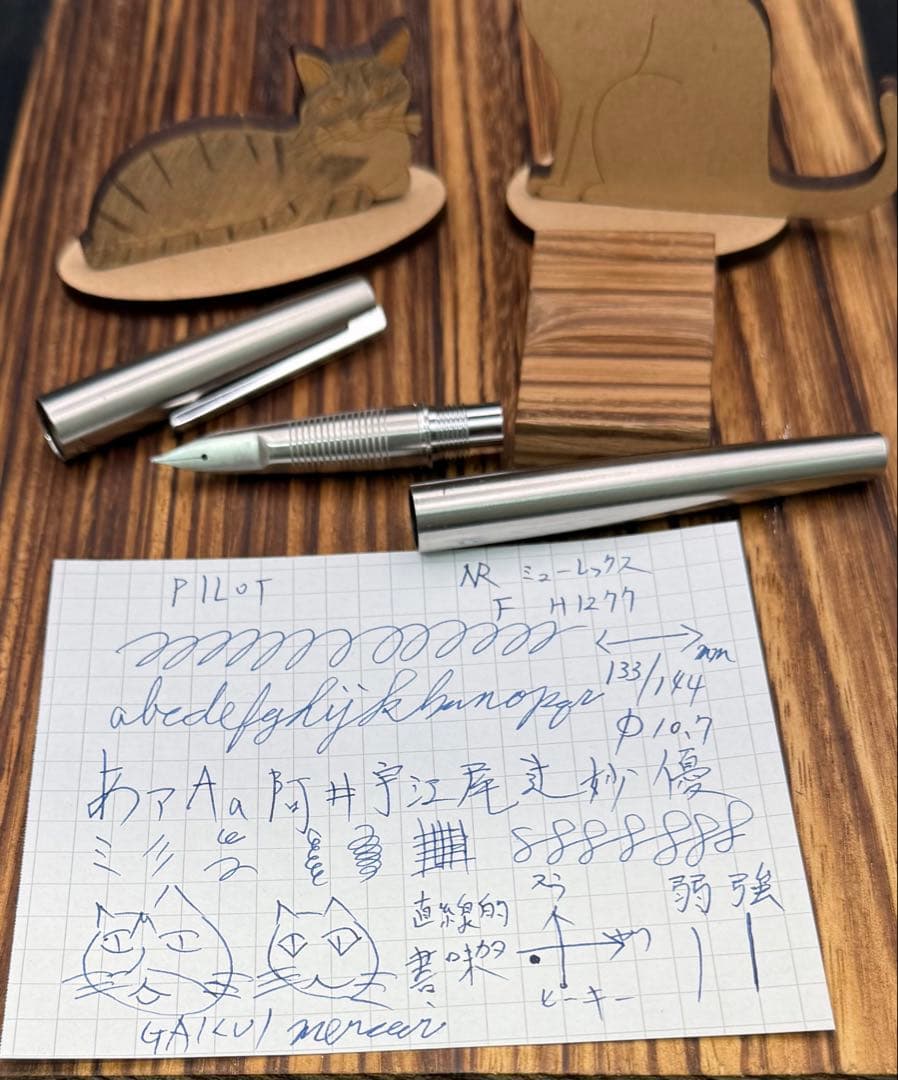 PILOT
NR ミューレックス
F H1277
mm
133/144
abcdefghijklmnopqr
φ10.7
あァAa阿井宇江尾辻妙優
弱 強
直線的
書味
ヒーキー
GAIKUI mercer